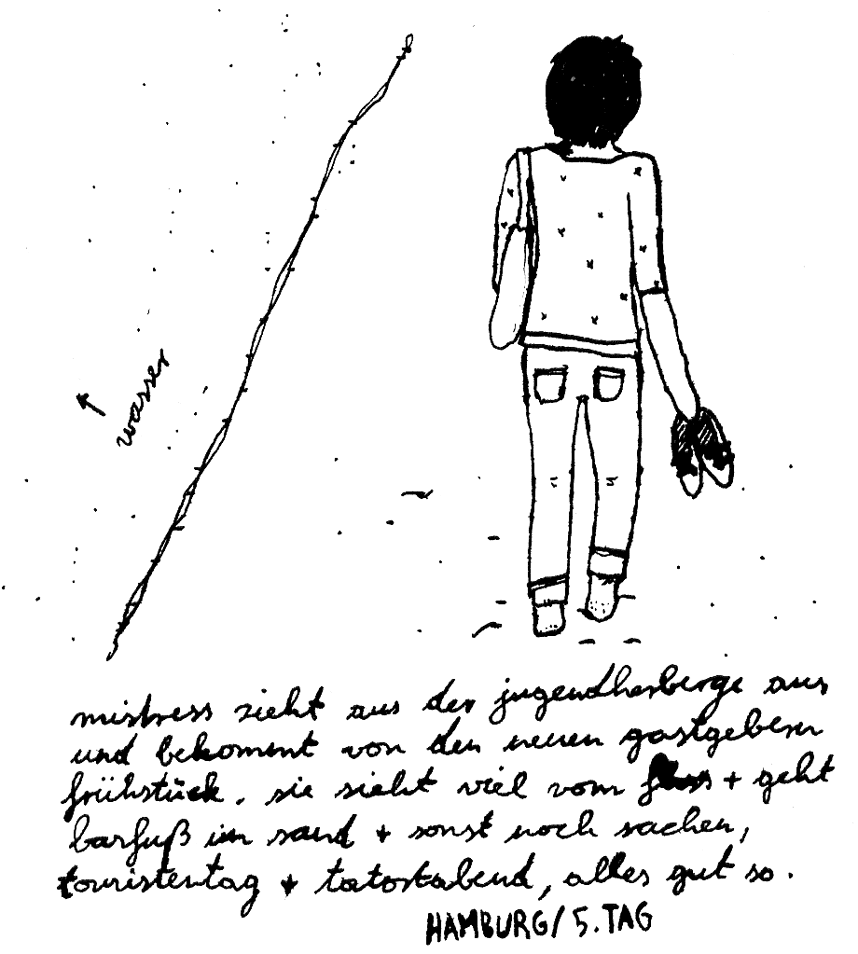 wasser
mistress zieht aus der jugendherberge aus
und bekommt von den neuen gastgebern
frühstück. sie sieht viel vom fluss + geht
barfuß im sand + sonst noch sachen,
touristentag + tatortabend, alles gut so.
HAMBURG/5.TAG